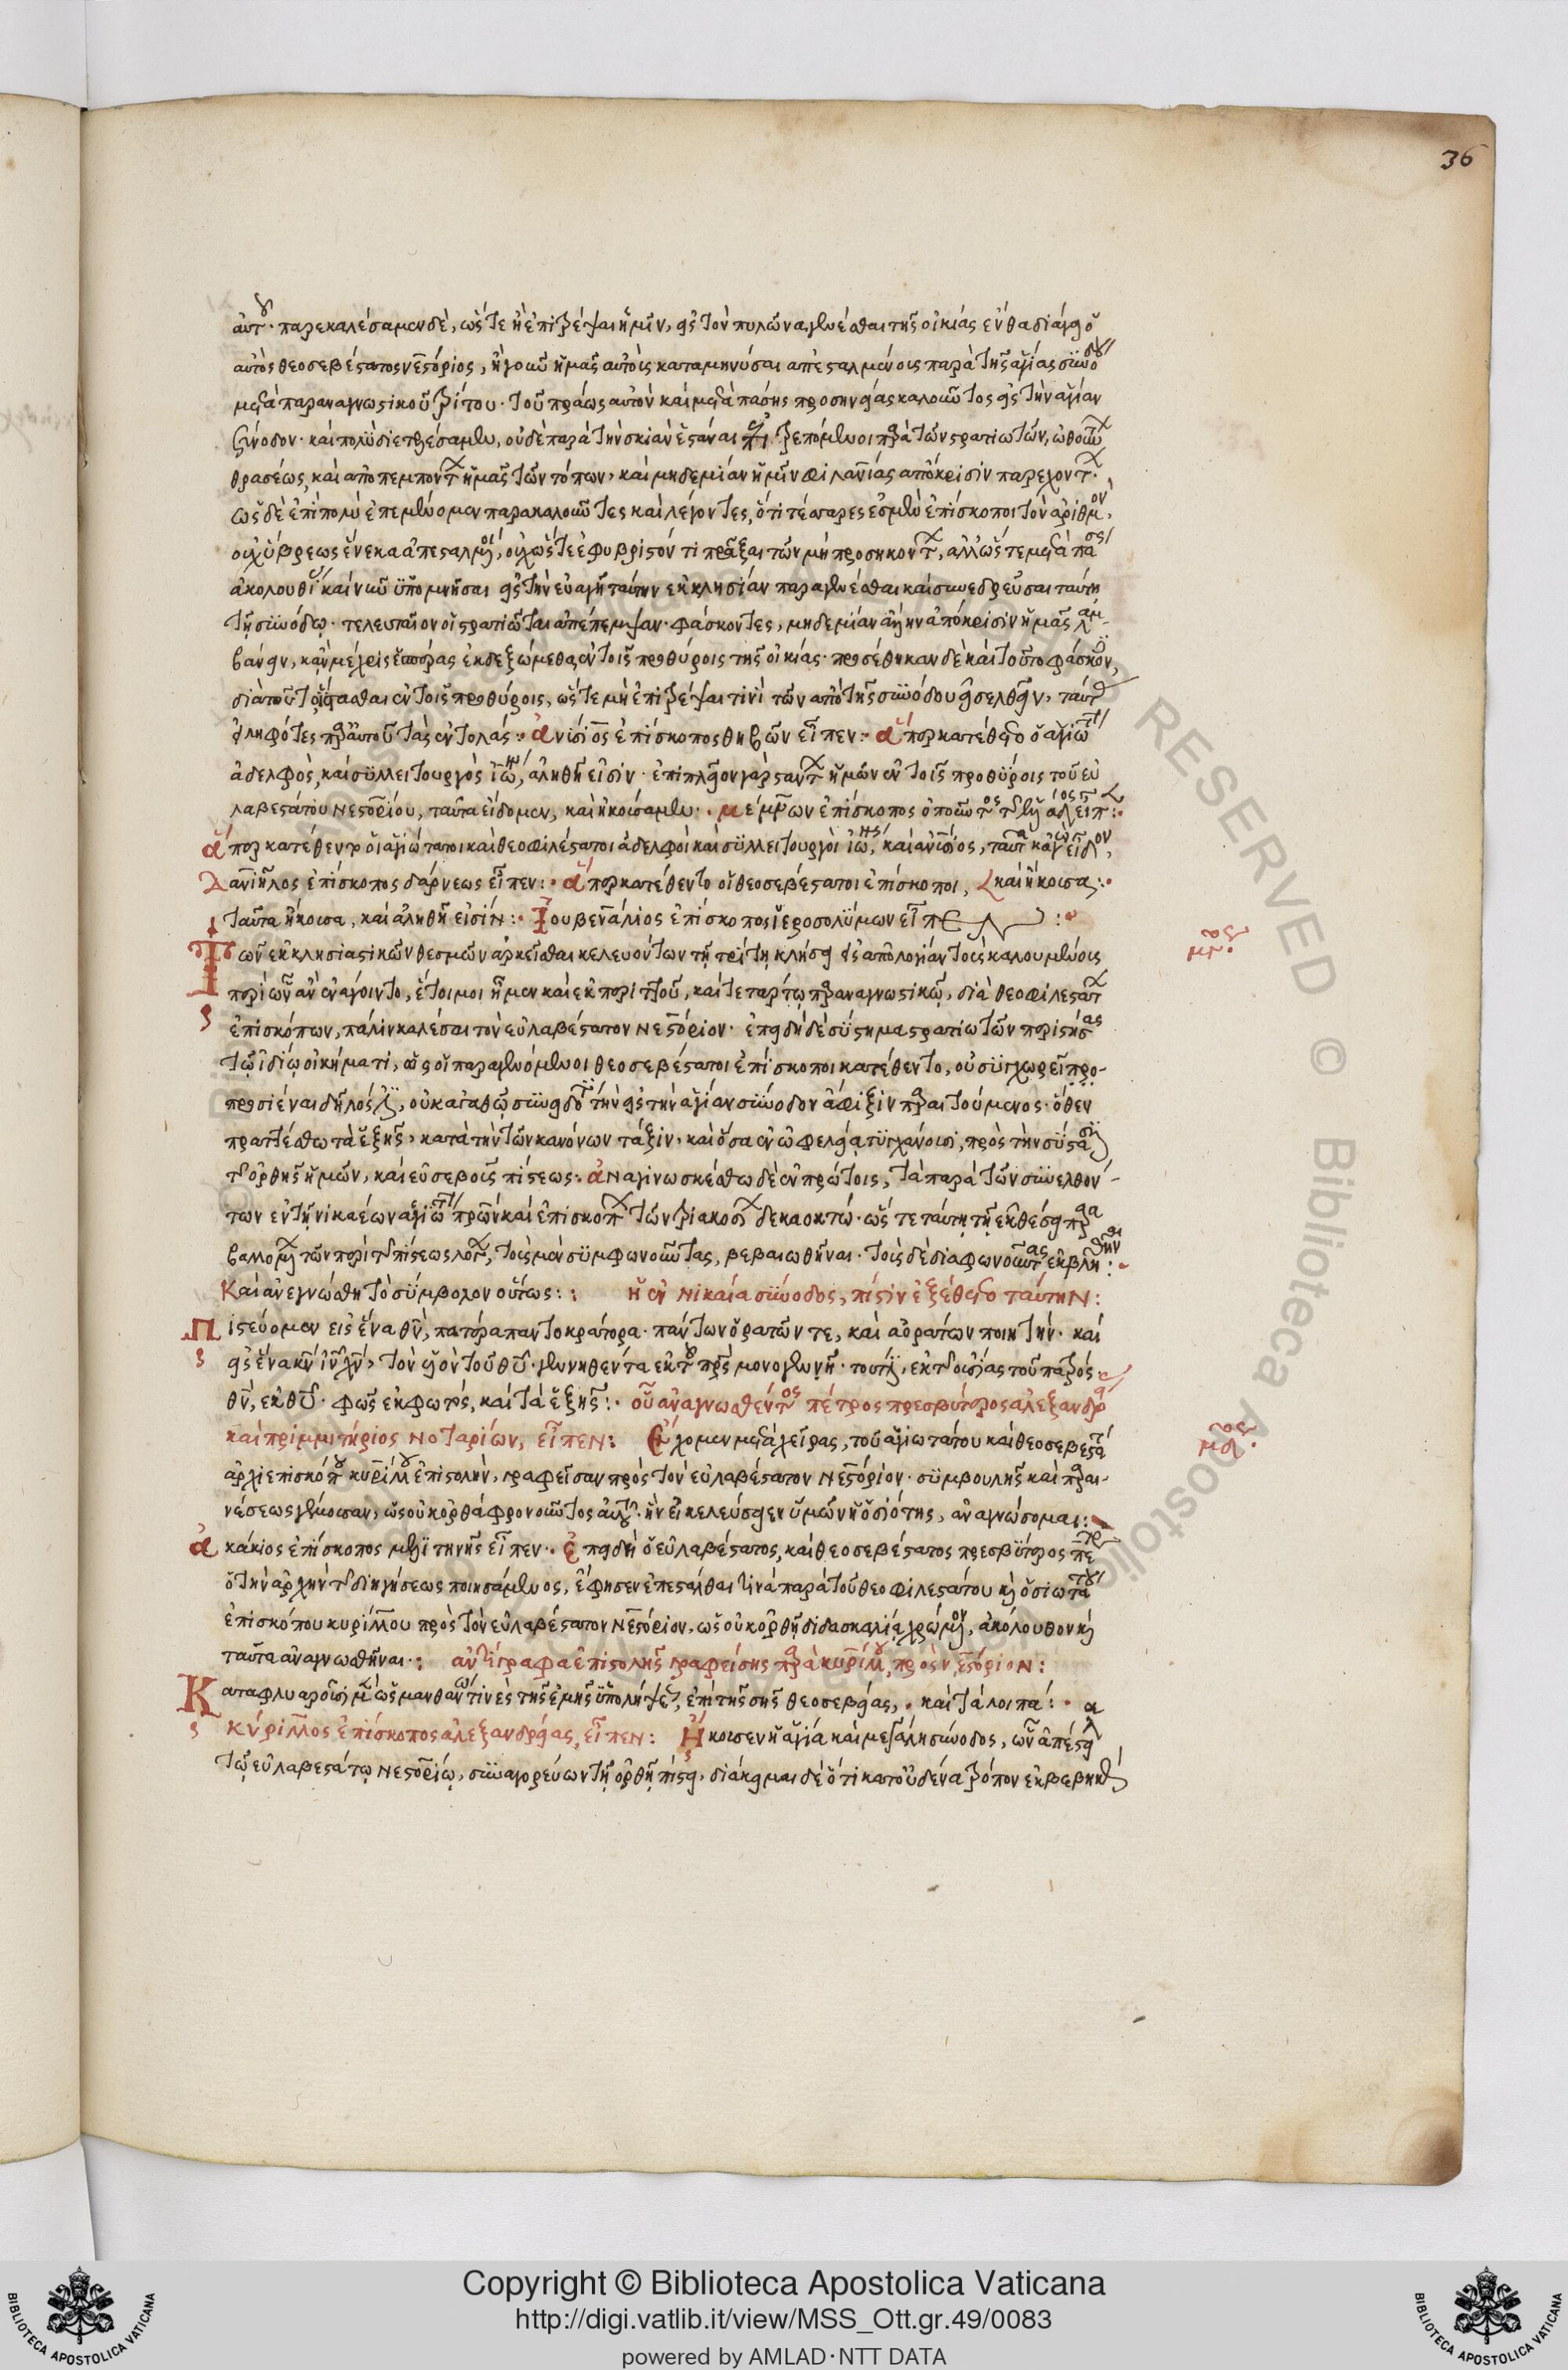 36
αὐτοῦ· παρεκαλέσαμεν δὲ, ὥστε ἢ ἐπιτρέψαι ἡμῖν, εἰς τὸν πυλῶνα γενέσθαι τῆς οἰκίας ἔνθα διάγει ὁ
αὐτὸς θεοσεβέστατος νεστόριος, ἢ γοῦν ἡμᾶς αὐτοῖς καταμηνύσαι ἀπεσταλμένοις παρὰ τῆς ἁγίας συνόδου
μετὰ παραναγνωστικοῦ τρίτου· τοῦ πράως αὐτὸν καὶ μετὰ πάσης προσηνείας καλοῦντος εἰς τὴν ἁγίαν
σύνοδον· καὶ πολὺ διετρέσαμεν, οὐδὲ παρὰ τὴν σκιὰν ἑστάναι ἐπιτρεπόμενοι παρὰ τῶν στρατιωτῶν, ὠθούντων
θρασέως, καὶ ἀποπεμπόντων ἡμᾶς τῶν τόπων, καὶ μηδεμίαν ἡμῖν φιλανίας ἀπόκρισιν παρεχόντων·
ὡς δὲ ἐπὶ πολὺ ἐπεμένομεν παρακαλοῦντες καὶ λέγοντες, ὅτι τέσσαρες ἐσμὲν ἐπίσκοποι τὸν ἀριθμὸν,
οὐχ ὕβρεως ἕνεκα ἀπεσταλμένοι, οὐχ ὥστε ἐφυβριστόν τι πρᾶξαι τῶν μὴ προσηκόντων, ἀλλ' ὥστε μετὰ πάσης
ἀκολουθίας καὶ νῦν ὑπομνῆσαι εἰς τὴν εὐαγῆ ταύτην ἐκκλησίαν παραγενέσθαι καὶ συνεδρεῦσαι ταύτῃ
τῇ συνόδῳ· τελευταῖον οἱ στρατιῶται ἀπέπεμψαν· φάσκοντες, μηδεμίαν ἄλλην ἀπόκρισιν ἡμᾶς λαμ-
βάνειν, κἂν μέχρις ἑσπέρας ἐκδεξώμεθα ἐν τοῖς προθύροις τῆς οἰκίας· προσέθηκαν δὲ καὶ τοῦτο φάσκοντες,
διὰ τοῦτο ἵστασθαι ἐν τοῖς προθύροις, ὥστε μὴ ἐπιτρέψαι τινὶ τῶν ἀπὸ τῆς συνόδου εἰσελθεῖν, ταύτας
εἰληφότες παρ' αὐτοῦ τὰς ἐντολάς:· ἀνύσιος ἐπίσκοπος θηβῶν εἶπεν:· ἅπερ κατέθετο ὁ ἁγιώτατος
ἀδελφὸς, καὶ συλλειτουργὸς ἰωάννης, ἀληθῆ εἰσιν· ἐπὶ πλεῖον γὰρ στάντων ἡμῶν ἐν τοῖς προθύροις τοῦ εὐ
λαβεστάτου Νεστορίου, ταῦτα εἴδομεν, καὶ ἠκούσαμεν:·
ἅπερ κατέθεντο οἱ ἁγιώτατοι καὶ θεοφιλέστατοι ἀδελφοὶ καὶ συλλειτουργοὶ ἰωάννης, καὶ ἀνύσιος, ταῦτα κἀγὼ εἶδον,
Δανιῆλος ἐπίσκοπος δάρνεως εἶπεν:· ἅπερ κατέθεντο οἱ θεοσεβέστατοι ἐπίσκοποι, καὶ ἤκουσα:·
ταῦτα ἤκουσα, καὶ ἀληθῆ εἰσίν:· Ἰουβενάλιος ἐπίσκοπος ἱεροσολύμων εἶπεν:·
Τῶν ἐκκλησιαστικῶν θεσμῶν ἀρκεῖσθαι κελευόντων τῇ τρίτῃ κλήσει εἰς ἀπολογίαν τοὺς καλουμένους
περὶ ὧν ἂν ἐνάγοιντο, ἕτοιμοι ἦμεν καὶ ἐκ περιττοῦ, καὶ τετάρτῳ παραναγνωστικῷ, διὰ θεοφιλεστάτων
ἐπισκόπων, πάλιν καλέσαι τὸν εὐλαβέστατον Νεστόριον· ἐπειδὴ δὲ σύστημα στρατιωτῶν περιστήσας
τῷ ἰδίῳ οἰκήματι, ὡς οἱ παραγενόμενοι θεοσεβέστατοι ἐπίσκοποι κατέθεντο, οὐ συγχωρεῖ προ-
προσιέναι δῆλός ἐστιν, οὐκ ἀγαθῷ συνειδότι τὴν εἰς τὴν ἁγίαν σύνοδον ἄφιξιν παραιτούμενος· ὅθεν
πραττέσθω τὰ ἑξῆς, κατὰ τὴν τῶν κανόνων τάξιν, καὶ ὅσα ἐν ὠφελείᾳ τυγχάνουσι, πρὸς τὴν σύστασιν
τῆς ὀρθῆς ἡμῶν, καὶ εὐσεβοῦς πίστεως:· ἀναγινωσκέσθω δὲ ἐν πρώτοις, τὰ παρὰ τῶν συνελθόν-
των ἐν τῇ νικαέων ἁγιωτάτων πατέρων καὶ ἐπισκόπων τῶν τριακοσίων δεκαοκτώ· ὥστε ταύτῃ τῇ ἐκθέσει παρα
βαλλομένων τῶν περὶ τῆς πίστεως λόγων, τοὺς μὲν συμφωνοῦντας, βεβαιωθῆναι· τοὺς δὲ διαφωνοῦντας ἐκβληθῆναι:·
Καὶ ἀνεγνώσθη τὸ σύμβολον οὕτως: : ἡ ἐν Νικαίᾳ σύνοδος, πίστιν ἐξέθετο ταύτην:
Πιστεύομεν εἰς ἕνα θν, πατέρα παντοκράτορα· πάντων ὁρατῶν τε, καὶ ἀοράτων ποιητήν· καὶ
εἰς ἕνα κν ιν χν, τὸν υἱὸν τοῦ θυ· γεννηθέντα ἐκ τοῦ πρς μονογενῆ· τουτέστιν, ἐκ τῆς οὐσίας τοῦ πατρός
θν, ἐκ θυ· φῶς ἐκ φωτός, καὶ τὰ ἑξῆς:· οὗ ἀναγνωσθέντος πέτρος πρεσβύτερος ἀλεξανδρείας
καὶ πριμμικήριος Νοταρίων, εἶπεν: ἔχομεν μετὰ χεῖρας, τοῦ ἁγιωτάτου καὶ θεοσεβεστάτου
ἀρχιεπισκόπου κυρίλλου ἐπιστολὴν, γραφεῖσαν πρὸς τὸν εὐλαβέστατον Νεστόριον· συμβουλῆς καὶ παραι-
νέσεως γέμουσαν, ὡς οὐκ ὀρθὰ φρονοῦντος αὐτοῦ· ἣν εἰ κελεύσειεν ὑμῶν ἡ ὁσιότης, ἀναγνώσομαι:
ἀκάκιος ἐπίσκοπος μελιτηνῆς εἶπεν:· ἐπειδὴ ὁ εὐλαβέστατος, καὶ θεοσεβέστατος πρεσβύτερος πέτρος
ὁ τὴν ἀρχὴν τῆς διηγήσεως ποιησάμενος, ἔφησεν ἐπεστάλθαι τινὰ παρὰ τοῦ θεοφιλεστάτου καὶ ὁσιωτάτου
ἐπισκόπου κυρίλλου πρὸς τὸν εὐλαβέστατον Νεστόριον, ὡς οὐκ ὀρθῇ διδασκαλίᾳ χρώμενον, ἀκόλουθον καὶ
ταῦτα ἀναγνωσθῆναι·: ἀντίγραφα ἐπιστολῆς γραφείσης παρὰ κυρίλλου, πρὸς νεστόριον:
Καταφλυαροῦσι μὲν ὡς μανθάνω τινὲς τῆς ἐμῆς ὑπολήψεως, ἐπὶ τῆς σῆς θεοσεβείας, · καὶ τὰ λοιπά:·
κύριλλος ἐπίσκοπος ἀλεξανδρείας, εἶπεν: Ἤκουσεν ἡ ἁγία καὶ μεγάλη σύνοδος, ὧν ἀπέστειλα
τῷ εὐλαβεστάτῳ Νεστορίῳ, συναγορεύων τῇ ὀρθῇ πίστει, διάκειμαι δὲ ὅτι κατ' οὐδένα τρόπον ἐκβεβηκὼς
Copyright © Biblioteca Apostolica Vaticana
http://digi.vatlib.it/view/MSS_Ott.gr.49/0083
powered by AMLAD·NTT DATA
BIBLIOTECA APOSTOLICA VATICANA
BIBLIOTECA APOSTOLICA VATICANA